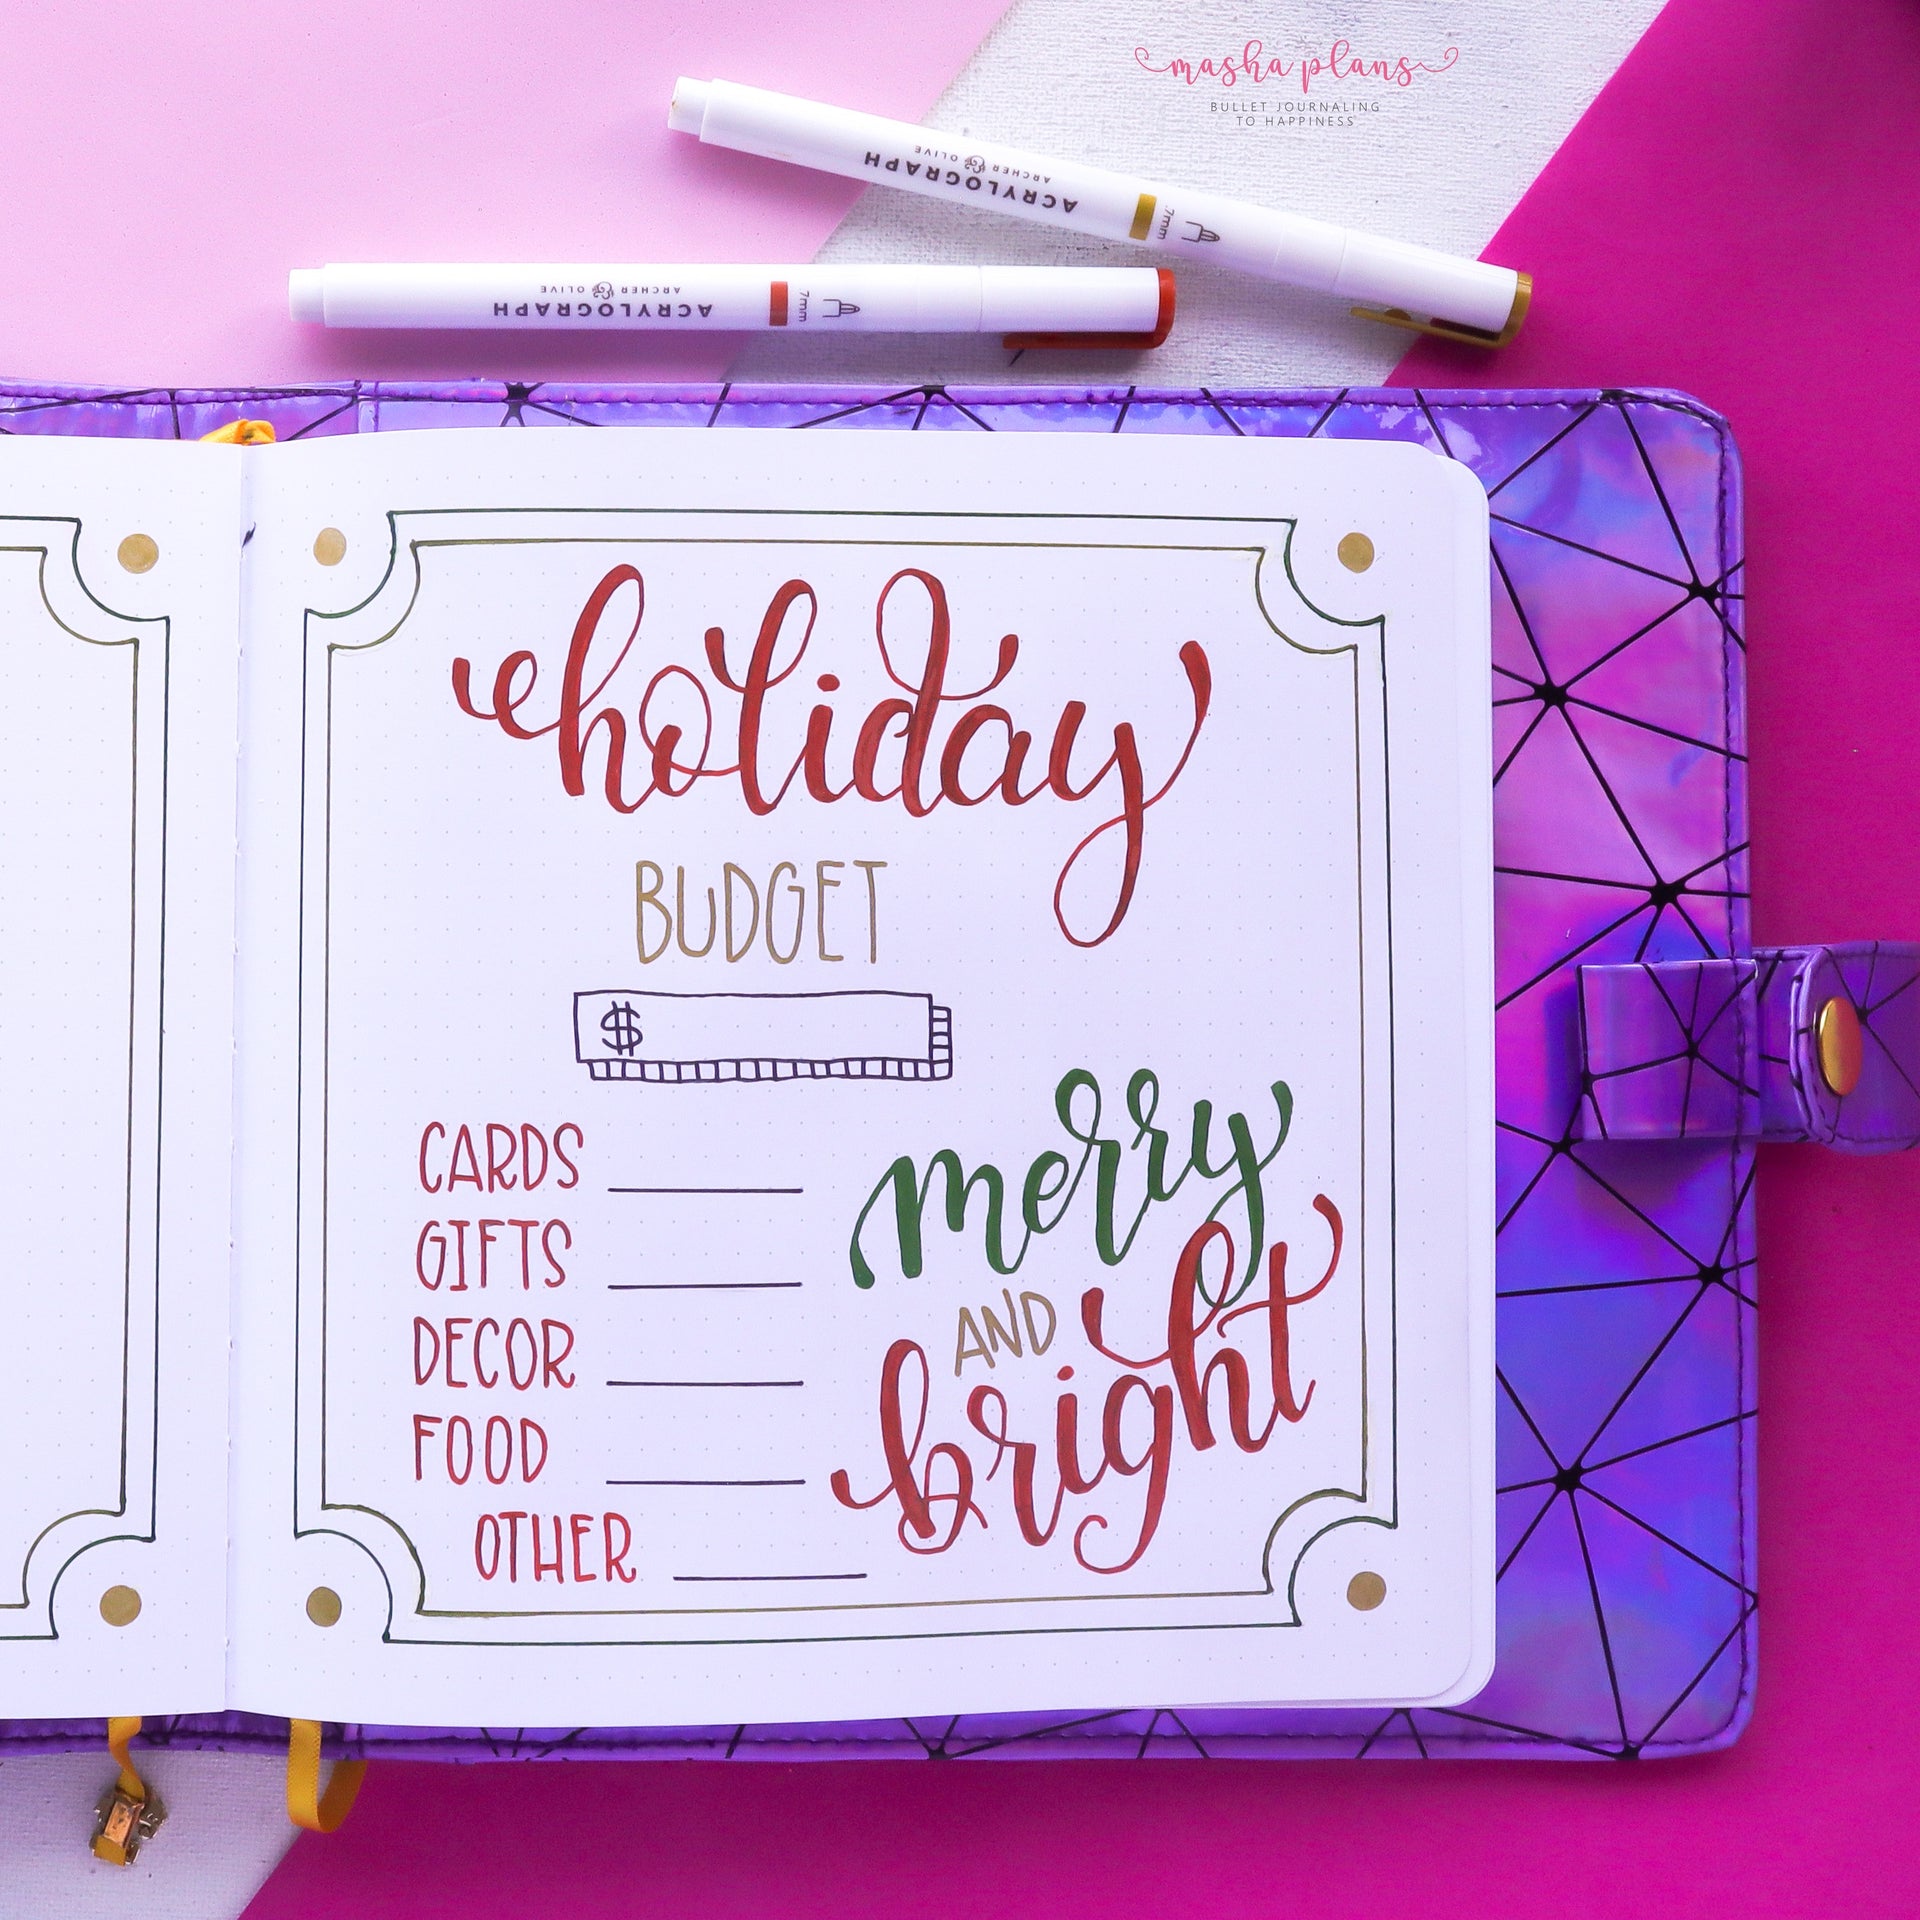 masha plans
BULLET JOURNALING
TO HAPPINESS
ACRYLOGRAPH
ARCHER & OLIVE
.7mm
ACRYLOGRAPH
ARCHER & OLIVE
7mm
holiday
BUDGET
$
CARDS
GIFTS
DECOR
FOOD
OTHER
merry
AND
bright